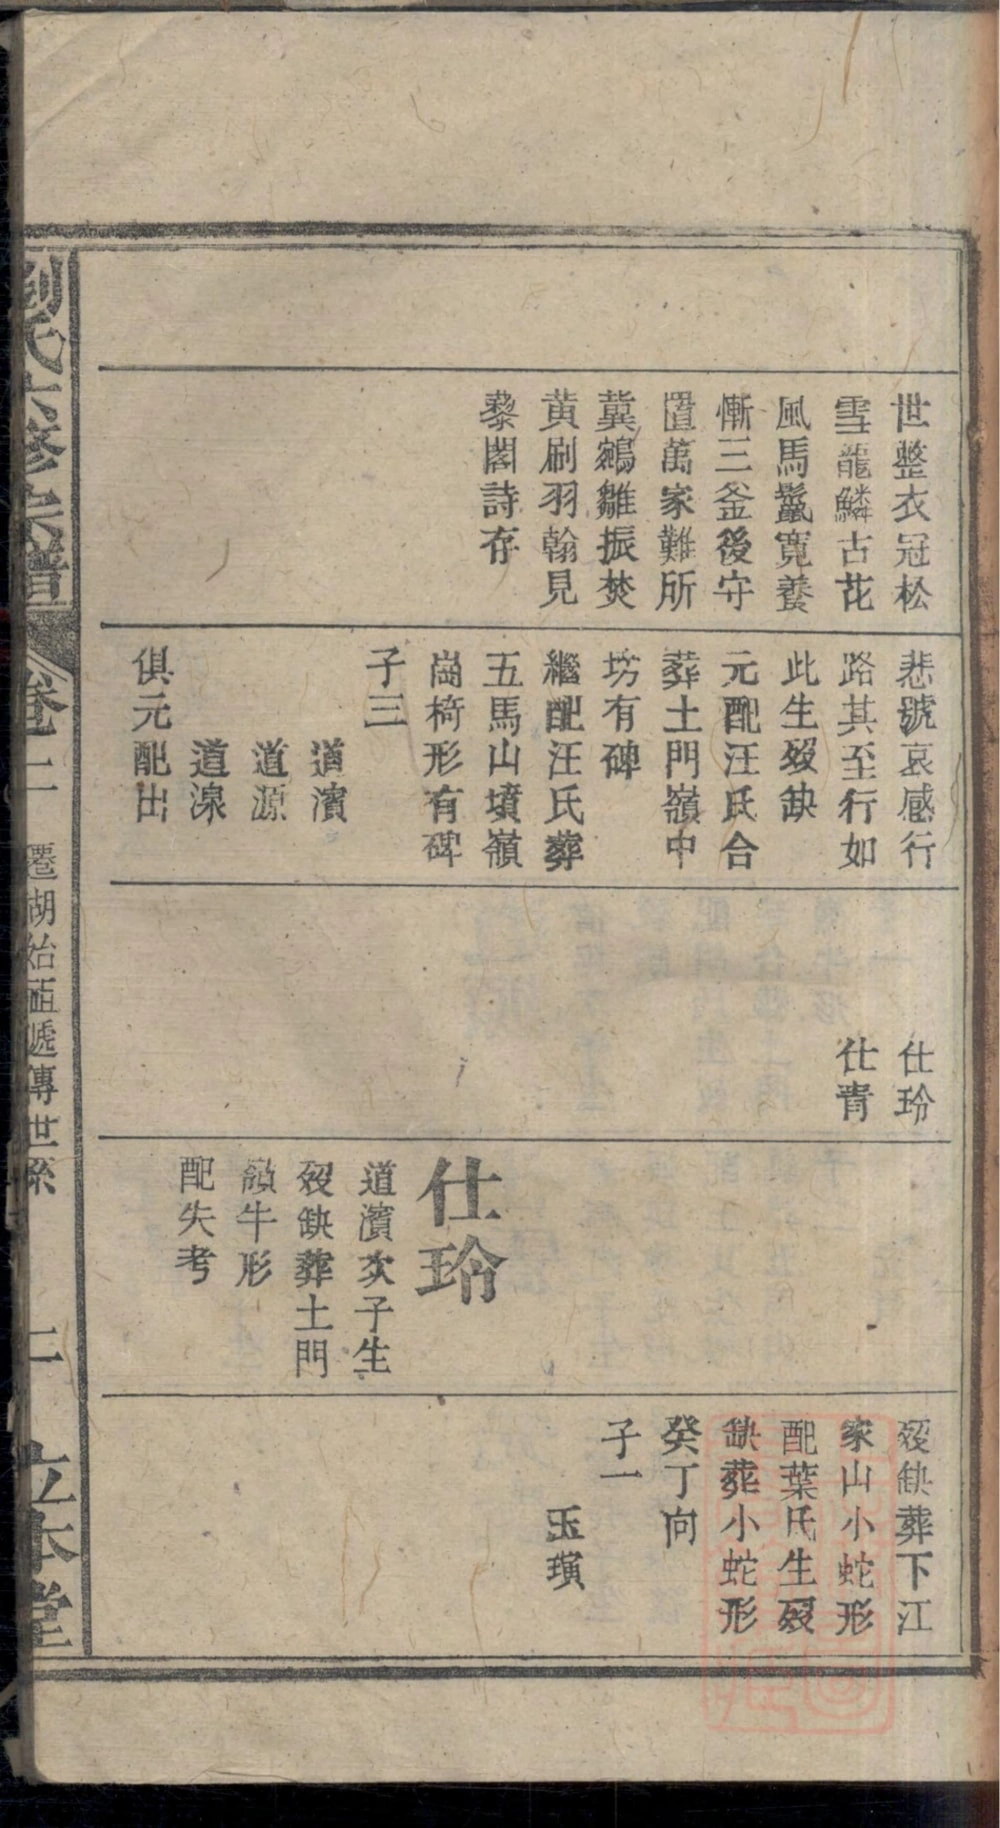 世整衣冠松
雪龍鱗古花
風馬鬛寛養
慚三釜後守
置萬家難所
冀鵷雛振焚
黄刷羽翰見
藜閣詩存
悲號哀感行
路其至行如
此生殁缺
元配汪氏合
葬土門嶺中
坊有碑
繼配汪氏葬
五馬山墳嶺
崗椅形有碑
子三
道濱
道源
道湶
俱元配出
仕玲
仕青
仕玲
道濱次子生
殁缺葬土門
嶺牛形
配失考
殁缺葬下江
家山小蛇形
配葉氏生殁
缺葬小蛇形
癸丁向
子一
玉璜
劉氏六修宗譜
卷二 遷湖始祖遞傳世系 二 立本堂